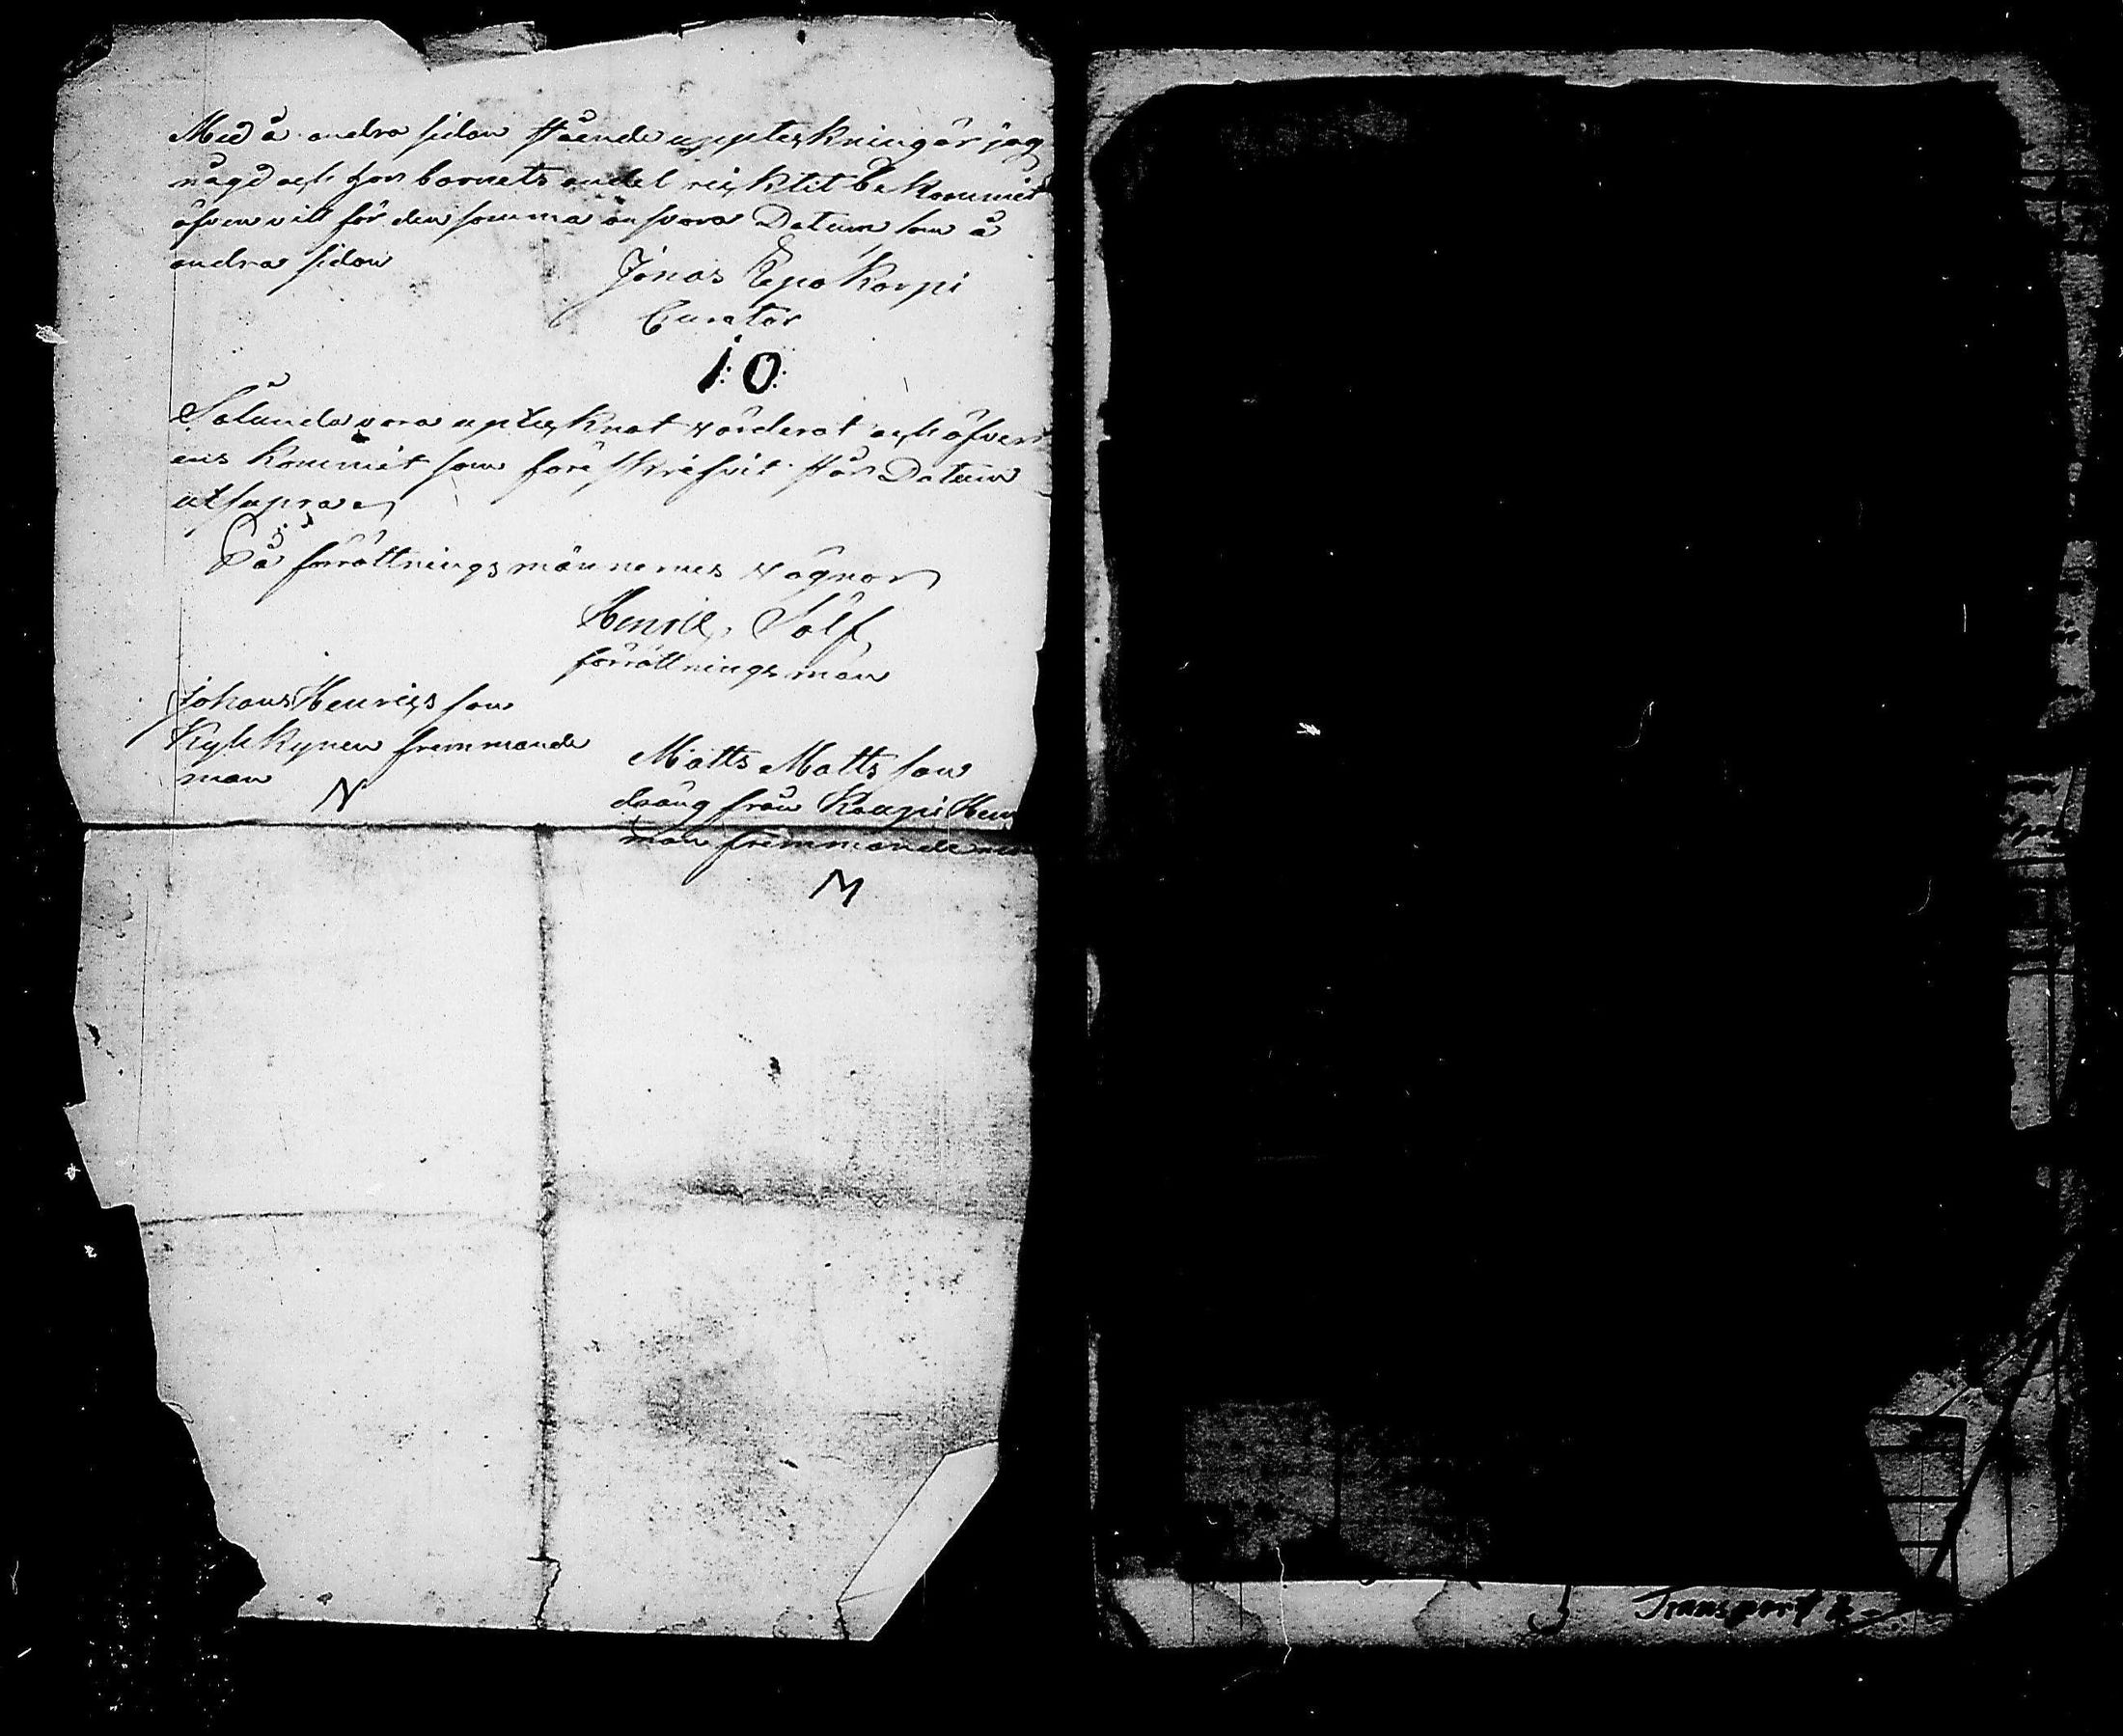 Med å andra sidan stående uppteckning är jag
nögd och har barnets andel ricktit bekommit
äfven vill för den samma ansvara Datum som å
andra sidan
Jonas Epo Korpi
Curator
I:O:
Sålunda vara uptecknat värderat och öfver
ens kommit som före skrifvit står Datum
utsupra
På förrättnings männernes vägnar
Henrik Sölf
förrättnings man
Johan Henrics son
Kyhkynen fremmande
man
N
Matts Matts son
dräng från Kauppi Hem
man fremmande man
M
Transport